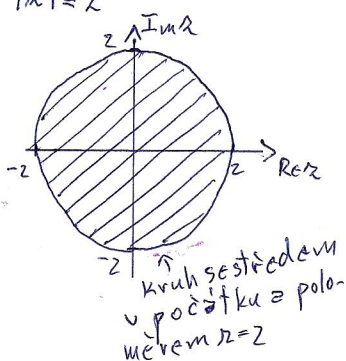 |z| = 2
Im z
2
-2
2
Re z
-2
kruh se středem
v počátku z polo-
měrem r=2